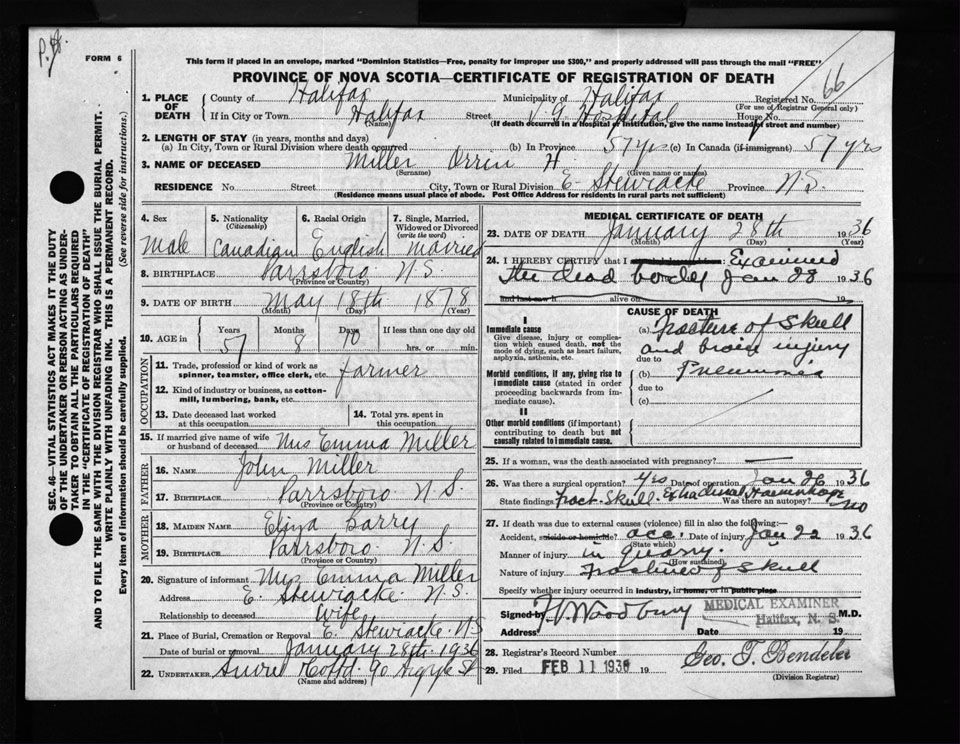 P.H.
FORM 6
This form if placed in an envelope, marked "Dominion Statistics—Free, penalty for improper use $300," and properly addressed will pass through the mail "FREE"
PROVINCE OF NOVA SCOTIA—CERTIFICATE OF REGISTRATION OF DEATH
66
1. PLACE OF DEATH
County of Halifax Municipality of Halifax Registered No.
(For use of Registrar General only)
If in City or Town Halifax Street V. G. Hospital House No.
(Name) (If death occurred in a hospital or institution, give the name instead of street and number)
2. LENGTH OF STAY (in years, months and days)
(a) In City, Town or Rural Division where death occurred (b) In Province 57 yrs (c) In Canada (if immigrant) 57 yrs
3. NAME OF DECEASED Miller Orrin H.
(Surname) (Given name or names)
RESIDENCE No. Street City, Town or Rural Division E. Stewiacke Province N.S.
(Residence means usual place of abode. Post Office Address for residents in rural parts not sufficient)
SEC. 46—VITAL STATISTICS ACT MAKES IT THE DUTY
OF THE UNDERTAKER OR PERSON ACTING AS UNDER-
TAKER TO OBTAIN ALL THE PARTICULARS REQUIRED
IN THE "CERTIFICATE OF REGISTRATION OF DEATH"
AND TO FILE THE SAME WITH THE DIVISION REGISTRAR WHO SHALL ISSUE THE BURIAL PERMIT.
WRITE PLAINLY WITH UNFADING INK. THIS IS A PERMANENT RECORD.
Every item of information should be carefully supplied. (See reverse side for instructions.)
4. Sex
Male
5. Nationality
(Citizenship)
Canadian
6. Racial Origin
English
7. Single, Married,
Widowed or Divorced
(write the word)
Married
8. BIRTHPLACE Parrsboro N.S.
(Province or Country)
9. DATE OF BIRTH May 18th 1878
(Month) (Day) (Year)
10. AGE in
Years Months Days If less than one day old
57 8 10 hrs. or min.
OCCUPATION
11. Trade, profession or kind of work as
spinner, teamster, office clerk, etc. farmer
12. Kind of industry or business, as cotton-
mill, lumbering, bank, etc.
13. Date deceased last worked
at this occupation
14. Total yrs. spent in
this occupation
15. If married give name of wife
or husband of deceased Mrs Emma Miller
FATHER
16. NAME John Miller
17. BIRTHPLACE Parrsboro N.S.
(Province or Country)
MOTHER
18. MAIDEN NAME Eliza Barry
19. BIRTHPLACE Parrsboro N.S.
(Province or Country)
20. Signature of informant Mrs Emma Miller
Address E. Stewiacke N.S.
Relationship to deceased Wife
21. Place of Burial, Cremation or Removal E. Stewiacke N.S
Date of burial or removal January 28th 1936
22. UNDERTAKER 90 Argyle St
(Name and address)
MEDICAL CERTIFICATE OF DEATH
23. DATE OF DEATH January 28th 1936
(Month) (Day) (Year)
24. I HEREBY CERTIFY that I : Examined
the dead body Jan 28 1936
and last saw h alive on 19
CAUSE OF DEATH
I
Immediate cause
Give disease, injury or complica-
tion which caused death, not the
mode of dying, such as heart failure,
asphyxia, asthenia, etc.
(a) fracture of Skull
and brain injury
due to
Morbid conditions, if any, giving rise to
immediate cause (stated in order
proceeding backwards from im-
mediate cause).
(b) Pneumonia
due to
(c)
II
Other morbid conditions (if important)
contributing to death but not
causally related to immediate cause.
25. If a woman, was the death associated with pregnancy?
26. Was there a surgical operation? Yes Date of operation Jan 26 1936
State findings Fract. Skull. Extradural Haemorrhage Was there an autopsy? No
27. If death was due to external causes (violence) fill in also the following:—
Accident, suicide or homicide? acc. Date of injury Jan 22 1936
(State which)
Manner of injury in quarry.
(How sustained)
Nature of injury Fracture of Skull
Specify whether injury occurred in industry, in home, or in public place
Signed by H. Woodbury MEDICAL EXAMINER M.D.
Halifax, N. S.
Address Date 19
28. Registrar's Record Number
Geo. T. Bendeler
29. Filed FEB 11 1936 19
(Division Registrar)